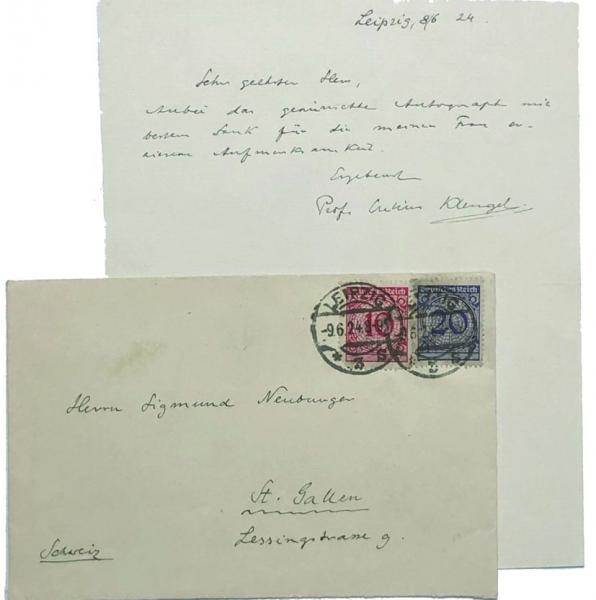 Leipzig, 8/6 24.
Sehr geehrter Herr,
Anbei das gewünschte Autograph mit
bestem Dank für die meiner Frau er-
wiesene Aufmerksamkeit.
Ergebenst
Prof. Julius Klengel.
LEIPZIG
-9.6.24.8-
* 3 s
Deutsches Reich
10
LEIPZIG
Deutsches Reich
20
* 3 s
Herrn Sigmund Neuburger
St. Gallen
Lessingstrasse 9.
Schweiz